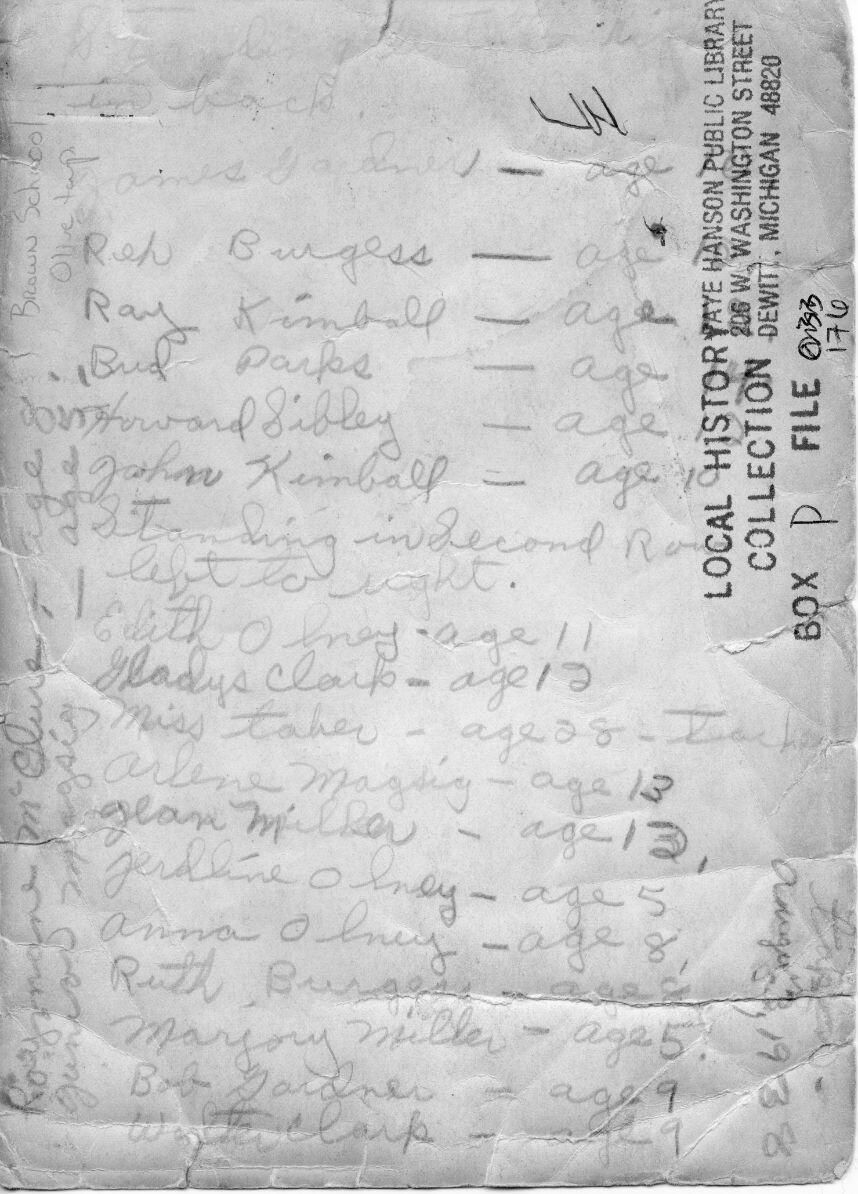 in back.
James Gardner — age
Reh Burgess — age
Ray Kimball — age
Bud Parks — age
Howard Sibley — age 12
John Kimball — age 10
Standing in Second Row
left to right.
Edith Olney - age 11
Gladys Clark - age 12
Miss taber - age 28 - Teacher
Arlene Magsig - age 13
Jean Miller - age 11
Jerdline Olney - age 5
Anna Olney - age 8
Ruth Burgess - age 8
Marjory Miller - age 5
Bob Gardner - age 9
Walter Clark - age 9
Brown School
Olive twp.
Rosymane McClure - age 8
Junior Magsig - age
LOCAL HISTORY
COLLECTION
BOX P FILE
176
FAYE HANSON PUBLIC LIBRARY
206 W. WASHINGTON STREET
DEWITT, MICHIGAN 48820
1938